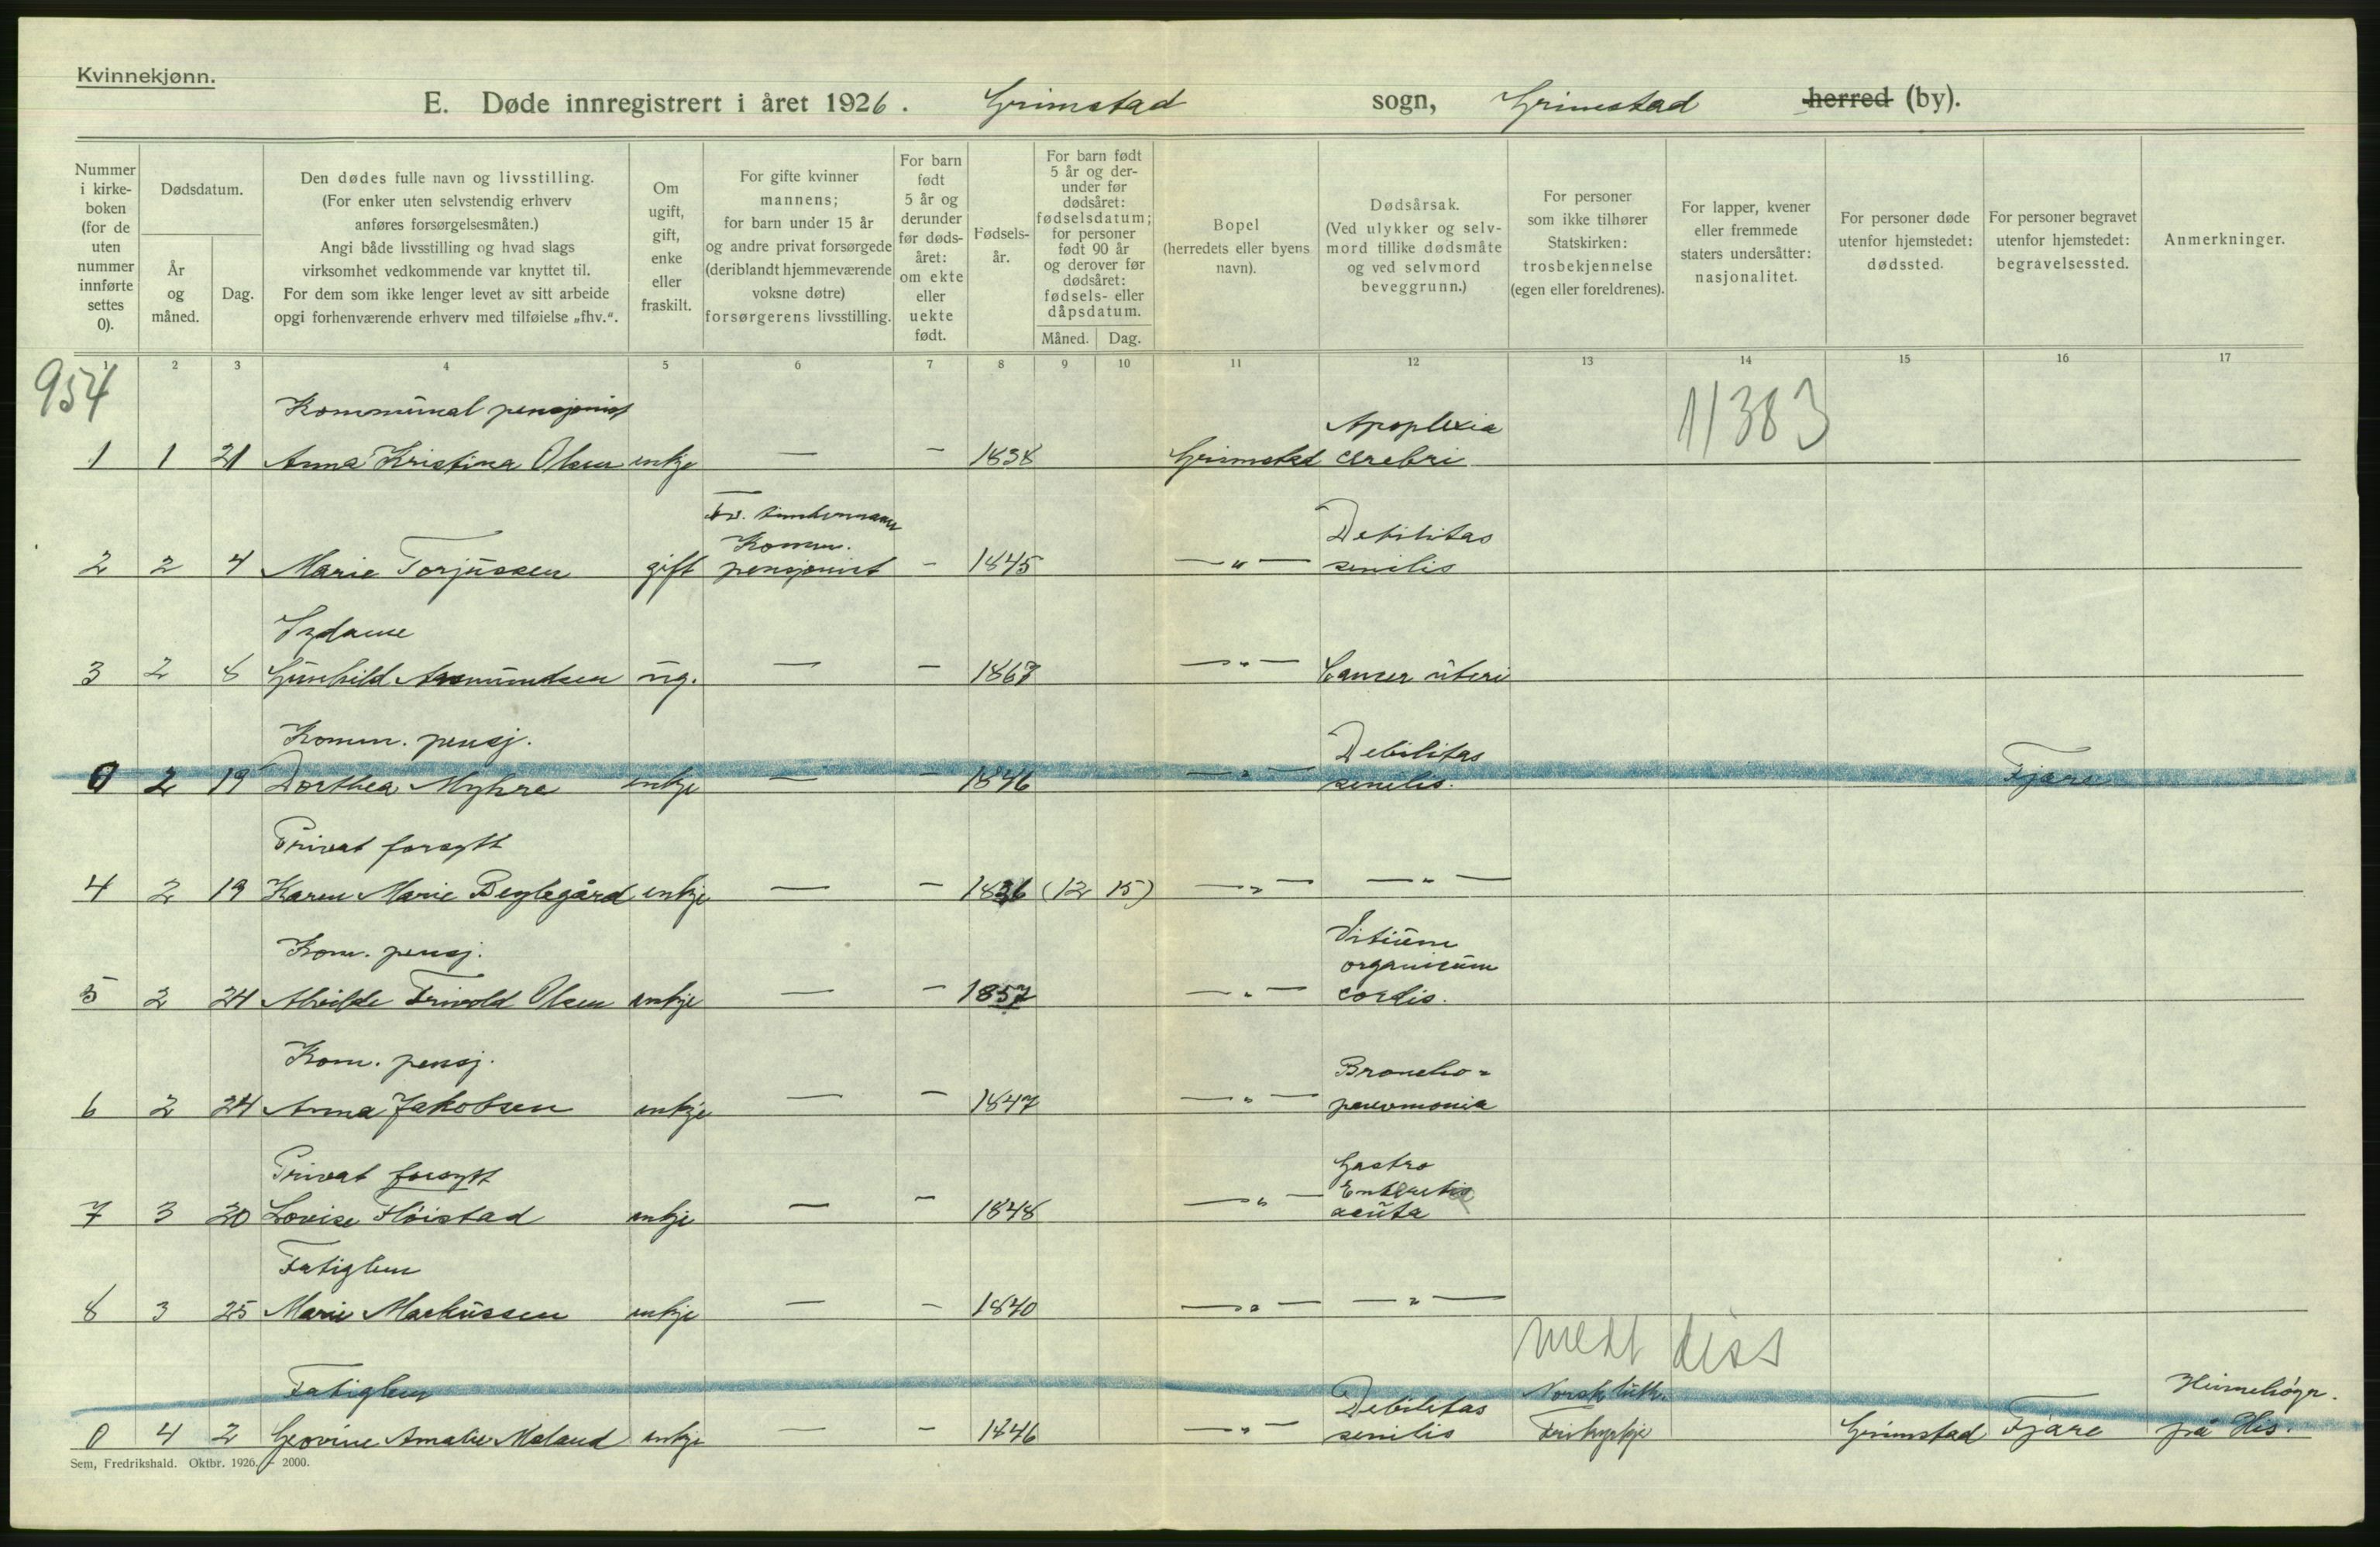 Kvinnekjønn.
E. Døde innregistrert i året 1926. Grimstad sogn, Grimstad herred (by).
Nummer i kirkeboken (for de uten nummer innførte settes 0).
Dødsdatum.
År og måned.
Dag.
Den dødes fulle navn og livsstilling.
(For enker uten selvstendig erhverv
anføres forsørgelsesmåten.)
Angi både livsstilling og hvad slags
virksomhet vedkommende var knyttet til.
For dem som ikke lenger levet av sitt arbeide
opgi forhenværende erhverv med tilføielse „fhv.“.
Om
ugift,
gift,
enke
eller
fraskilt.
For gifte kvinner
mannens;
for barn under 15 år
og andre privat forsørgede
(deriblandt hjemmeværende
voksne døtre)
forsørgerens livsstilling.
For barn
født
5 år og
derunder
før døds-
året:
om ekte
eller
uekte
født.
Fødsels-
år.
For barn født
5 år og der-
under før
dødsåret:
fødselsdatum;
for personer
født 90 år
og derover før
dødsåret:
fødsels- eller
dåpsdatum.
Måned. Dag.
Bopel
(herredets eller byens
navn).
Dødsårsak.
(Ved ulykker og selv-
mord tillike dødsmåte
og ved selvmord
beveggrunn.)
For personer
som ikke tilhører
Statskirken:
trosbekjennelse
(egen eller foreldrenes).
For lapper, kvener
eller fremmede
staters undersåtter:
nasjonalitet.
For personer døde
utenfor hjemstedet:
dødssted.
For personer begravet
utenfor hjemstedet:
begravelsessted.
Anmerkninger.
1 2 3 4 5 6 7 8 9 10 11 12 13 14 15 16 17
954
11383
Kommunal pensjonist
Apoplexia
1 1 21 Anna Kristina Olsen enkje — — 1838 Grimstad cerebri
Komm.
Debilitas
2 2 4 Marie Torjussen gift pensjonist — 1845 —"— senilis
3 2 8 Gunhild Aasmundsen ug. — — 1867 —"— Cancer uteri
Komm. pensj.
Debilitas
0 2 19 Dorthea Myhre enkje — — 1846 —"— senilis. Fjære
Privat forsytt
4 2 19 Karen Marie Beglegård enkje — — 1836 (12 15) —"— —"—
Kom. pensj.
Vitium
organicum
5 2 24 Alvilde Trivold Olsen enkje — — 1857 —"— cordis.
Kom. pensj.
Broncho-
6 2 24 Anna Jakobsen enkje — — 1847 —"— pneumonia
Privat forsytt
Gastro
7 3 20 Lovise Høistad enkje — — 1848 —"— acuta
Fatiglem
8 3 25 Marie Markussen enkje — — 1840 —"— —"—
medt diss
Fatiglem
Debilitas
Norsk luth.
0 4 2 Amalie Moland enkje — — 1846 —"— senilis Frikyrkje Grimstad Fjære på His.
Sem, Fredrikshald. Oktbr. 1926. - 2000.